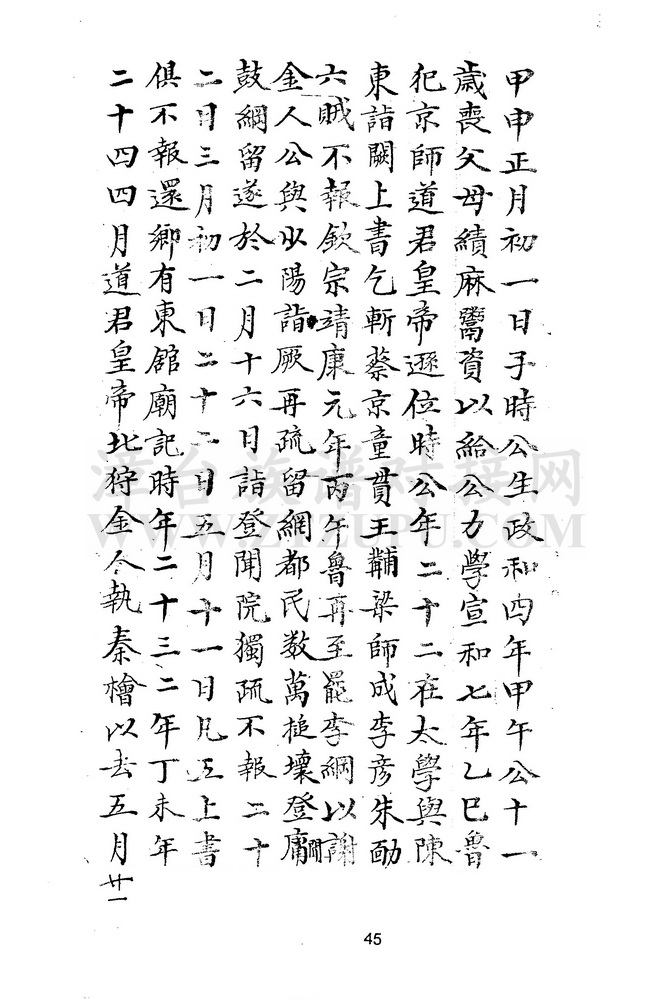 甲申正月初一日子時公生政和四年甲午公十一
歲喪父母績麻鬻資以給公力學宣和七年乙巳魯
犯京師道君皇帝遜位時公年二十二在太學與陳
東詣闕上書乞斬蔡京童貫王黼梁師成李彥朱勔
六賊不報欽宗靖康元年丙午魯再至罷李綱以謝
金人公與少陽詣厥再疏留綱都民数萬搥壞登庸聞
鼓綱留遂於二月十六日詣登聞院獨疏不報二十
二日三月初一日二十二日五月十一日凡五上書
俱不報還鄉有東舘廟記時年二十三二年丁未年
二十四四月道君皇帝北狩金人執秦檜以去五月
廿一
漳台族谱对接网
WWW.ZTZUPU.COM
45